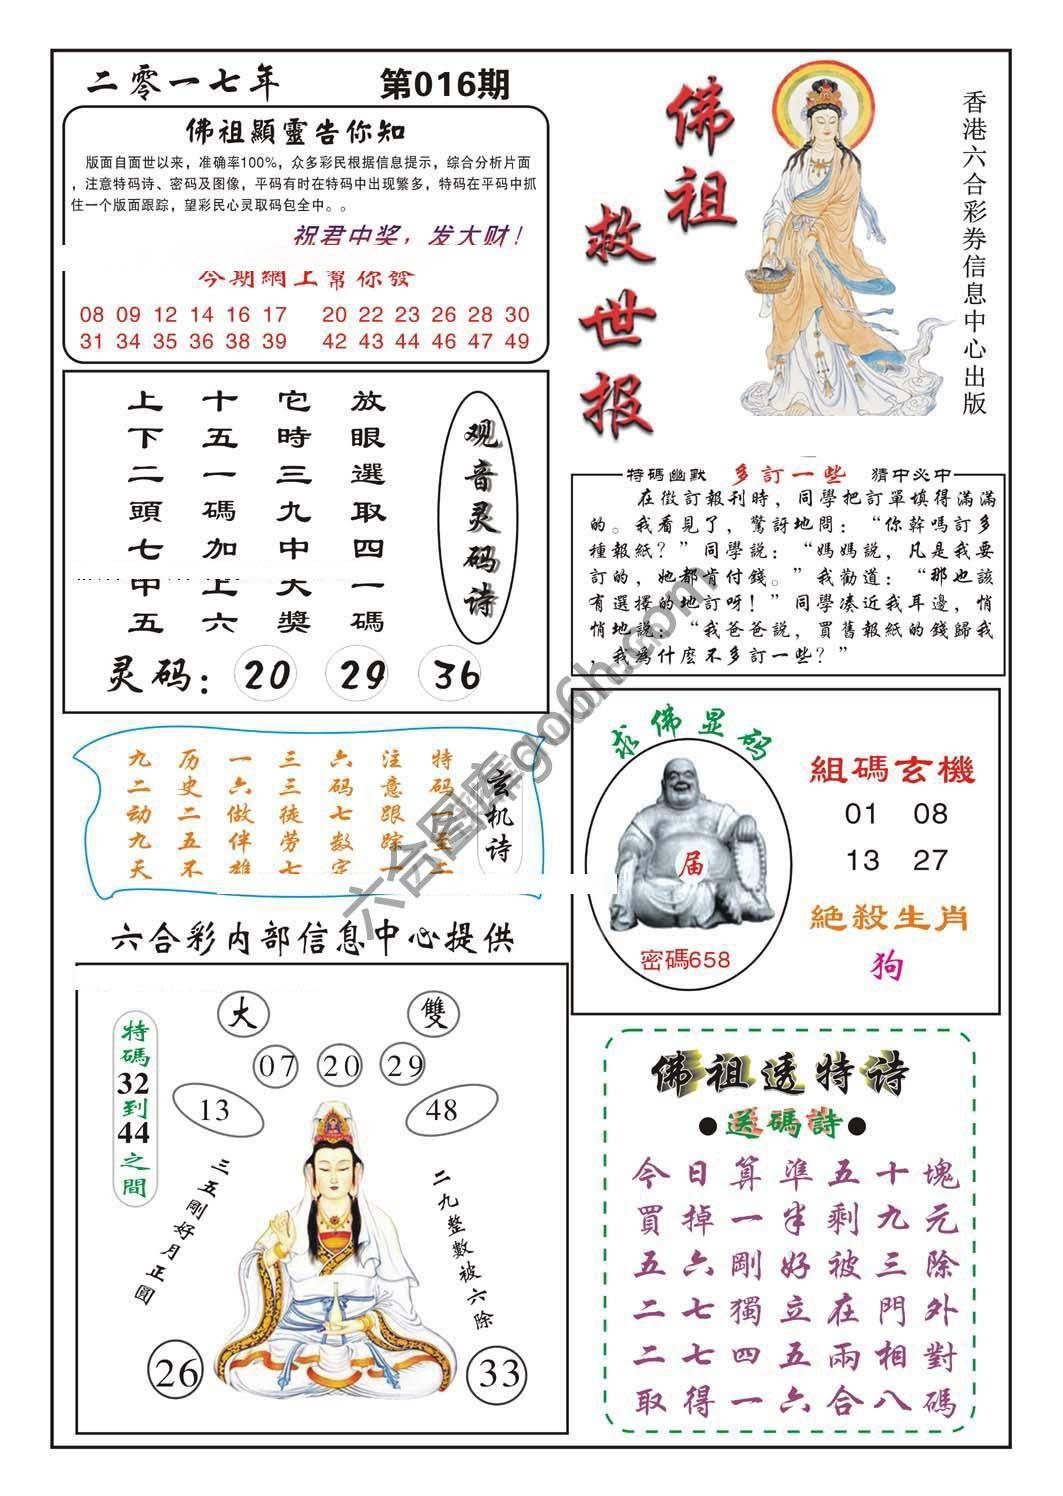 二零一七年 第016期
佛祖顯靈告你知
版面自面世以来，准确率100%，众多彩民根据信息提示，综合分析片面
，注意特码诗、密码及图像，平码有时在特码中出现繁多，特码在平码中抓
住一个版面跟踪，望彩民心灵取码包全中。。
祝君中奖，发大财！
今期網上幫你發
08 09 12 14 16 17 20 22 23 26 28 30
31 34 35 36 38 39 42 43 44 46 47 49
佛祖
救世报
香港六合彩券信息中心出版
观音灵码诗
放眼選取四一碼
它時三九中大獎
十五一碼加上六
上下二頭七中五
灵码：20 29 36
特碼幽默 多訂一些 猜中必中
在徵訂報刊時，同學把訂單填得滿滿
的。我看見了，驚訝地問：“你幹嗎訂多
種報紙？”同學説：“媽媽説，凡是我要
訂的，她都肯付錢。”我勸道：“那也該
有選擇的地訂呀！”同學凑近我耳邊，悄
悄地説：“我爸爸説，買舊報紙的錢歸我
，我為什麽不多訂一些？”
玄机诗
特码一至二
注意跟踪一
六码七数定
三三徒劳七
一六做伴雄
历史二五不
九二动九天
求佛显码
届
密碼658
組碼玄機
01 08
13 27
絕殺生肖
狗
六合彩内部信息中心提供
特碼32到44之間
大 雙
07 20 29
13 48
三五剛好月正圓
二九整數被六除
26 33
佛祖透特诗
●送碼詩●
今日算準五十塊
買掉一半剩九元
五六剛好被三除
二七獨立在門外
二七四五兩相對
取得一六合八碼
六合图库go6h.com